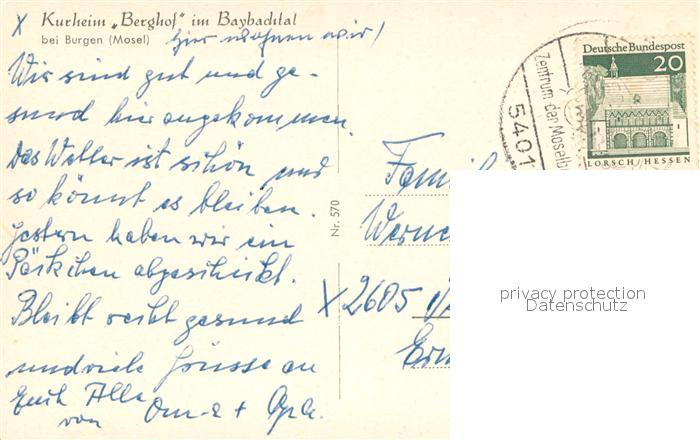 x Kurheim „Berghof" im Baybachtal
bei Burgen (Mosel)
hier wohnen wir!
Wir sind gut und ge-
sund hier angekommen.
Das Wetter ist schön und
so könnt es bleiben.
Gestern haben wir ein
Päckchen abgeschickt.
Bleibt recht gesund
und viele Grüsse an
Euch Alle
von Oma + Opa.
Nr. 570
Deutsche Bundespost
20
LORSCH/HESSEN
5401
Zentrum der Moselb
Famil
Werne
x 2605
privacy protection
Datenschutz